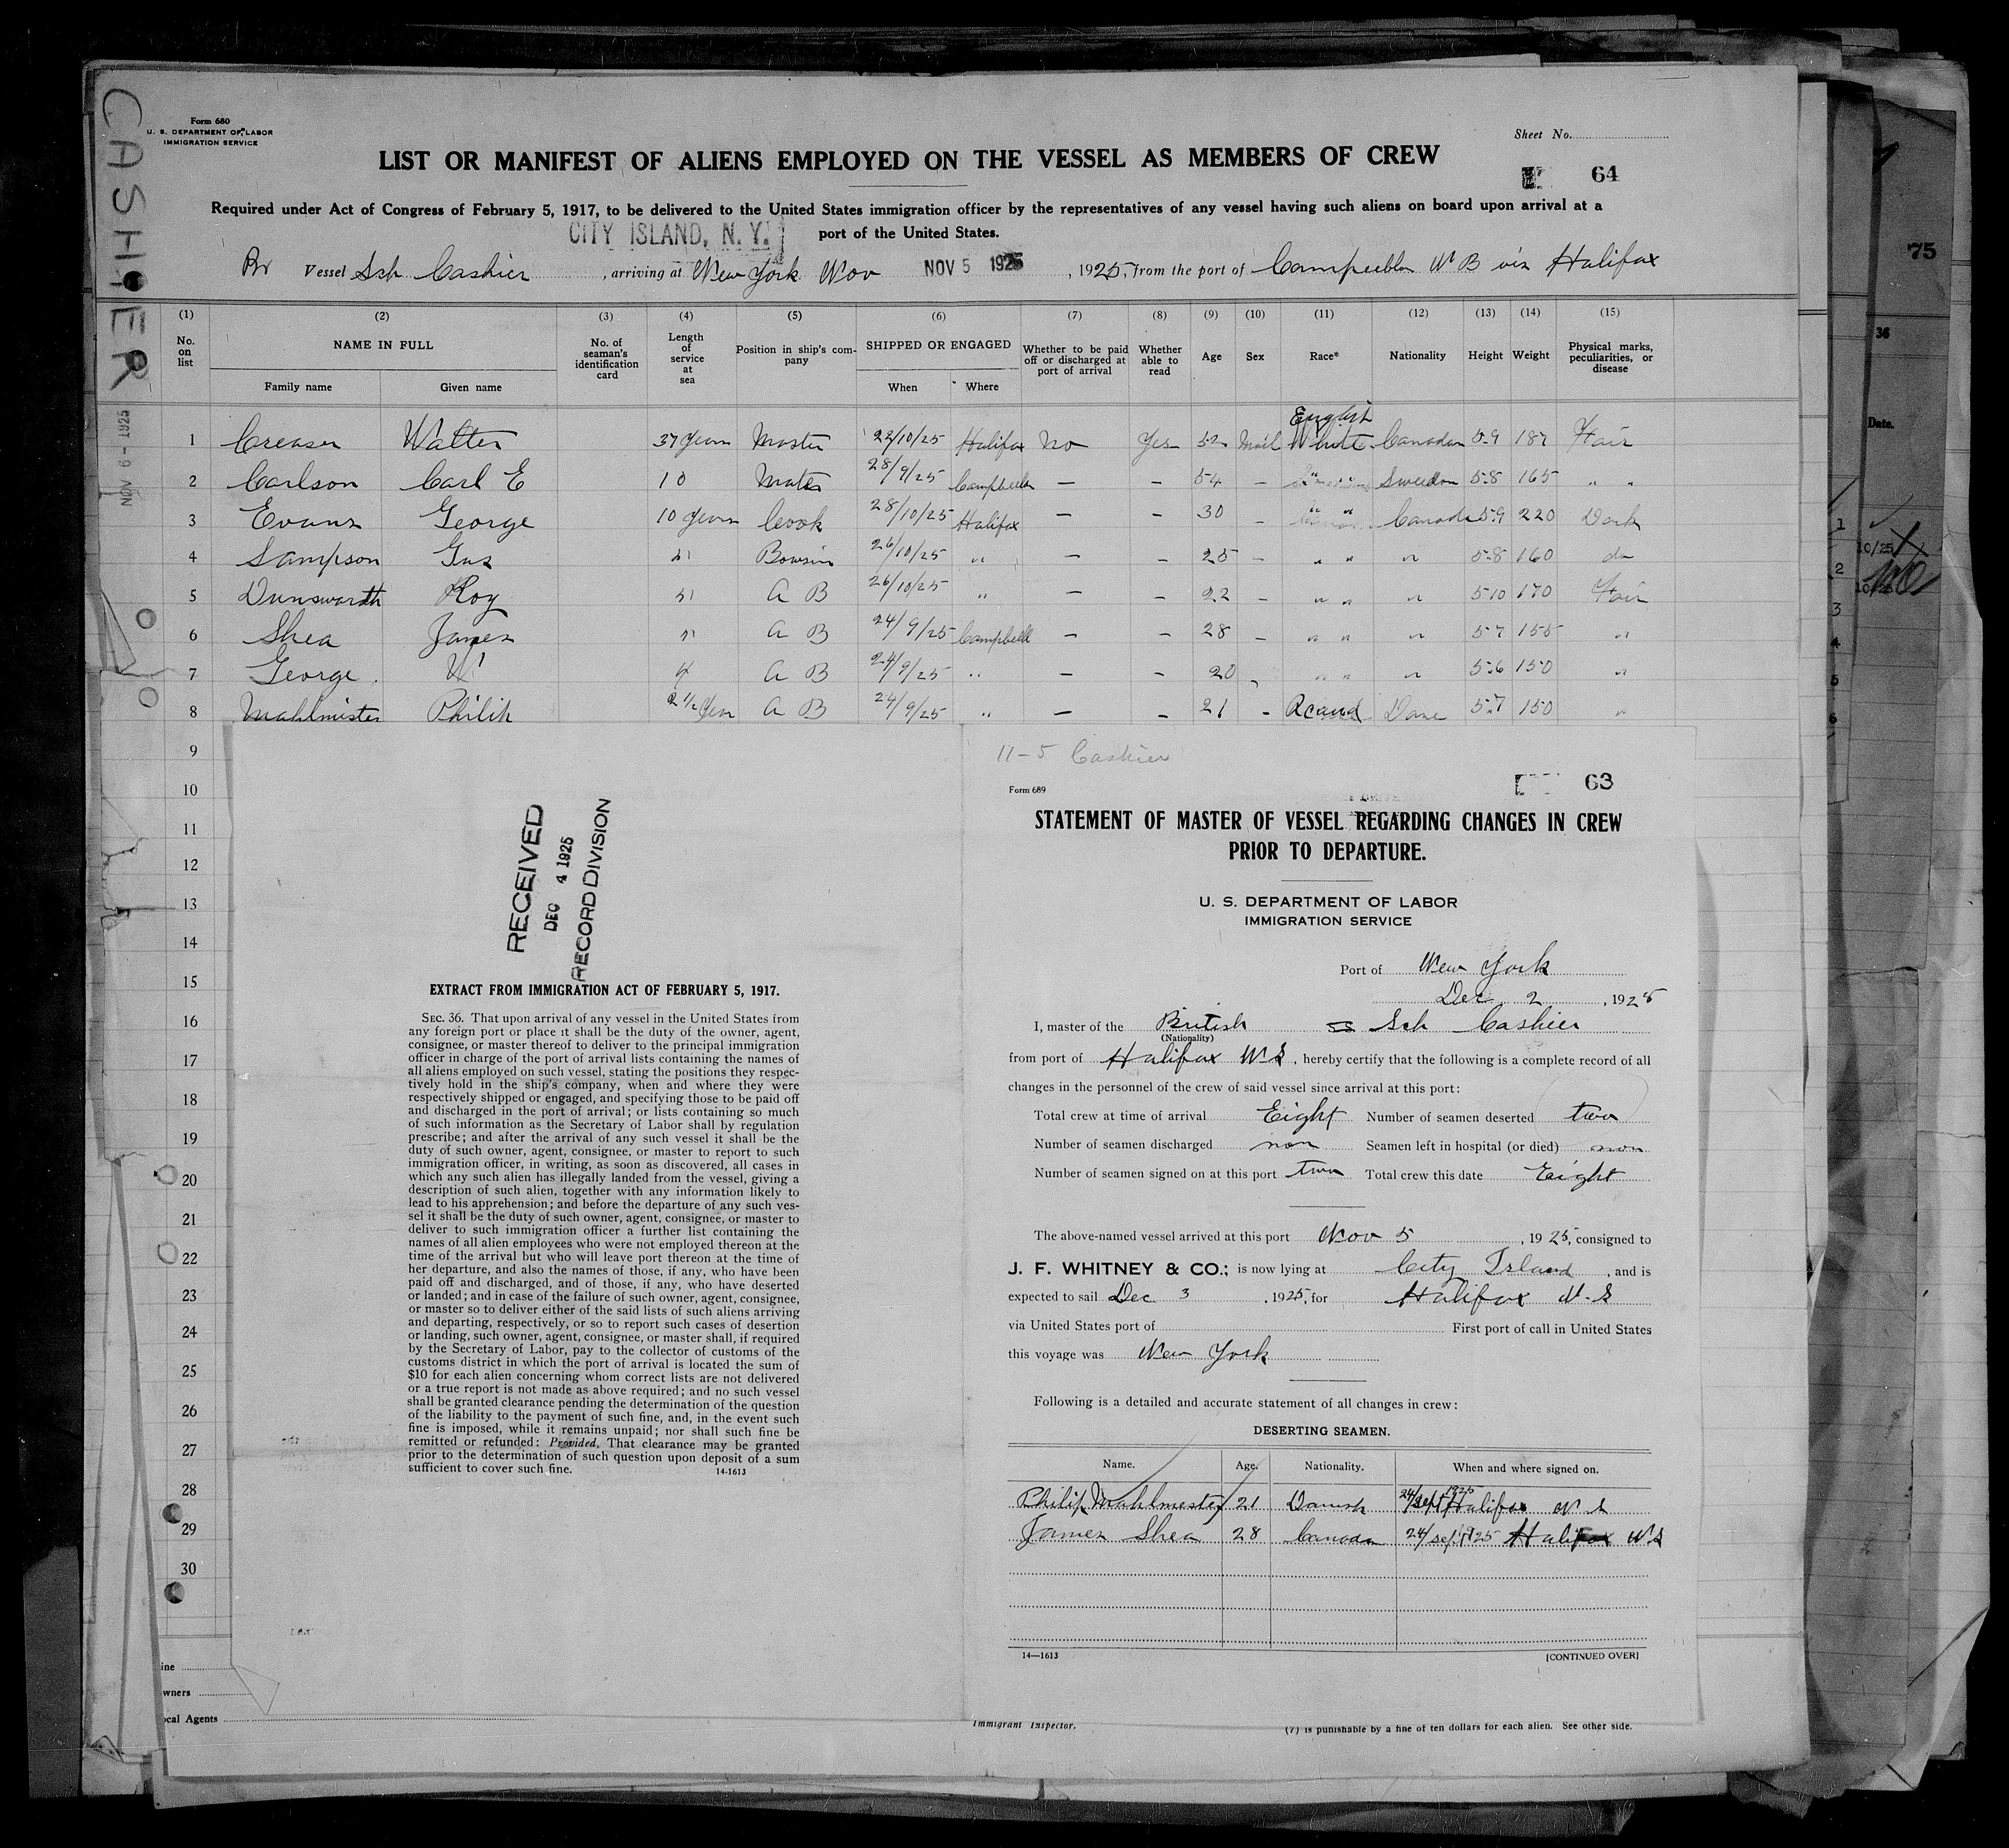 CASHIER
NOV 6 - 1925
Form 680
U. S. DEPARTMENT OF LABOR
IMMIGRATION SERVICE
Sheet No.
LIST OR MANIFEST OF ALIENS EMPLOYED ON THE VESSEL AS MEMBERS OF CREW
64
Required under Act of Congress of February 5, 1917, to be delivered to the United States immigration officer by the representatives of any vessel having such aliens on board upon arrival at a
CITY ISLAND, N. Y. port of the United States.
Br Vessel Sch Cashier, arriving at New York Nov NOV 5 1925, 1925, from the port of Campbellton N B via Halifax
(1) (2) (3) (4) (5) (6) (7) (8) (9) (10) (11) (12) (13) (14) (15)
No. on list NAME IN FULL No. of seaman's identification card Length of service at sea Position in ship's company SHIPPED OR ENGAGED Whether to be paid off or discharged at port of arrival Whether able to read Age Sex Race* Nationality Height Weight Physical marks, peculiarities, or disease
Family name Given name When Where
English
1 Creaser Walter 37 Years Master 22/10/25 Halifax No Yes 52 Mail White Canadan 5-9 187 Fair
2 Carlson Carl E 10 Mate 28/9/25 Campbell — — 54 — " " Sweedon 5-8 165 " "
3 Evans George 10 Years Cook 28/10/25 Halifax — — 30 — " " Canada 5-9 220 Dark
4 Sampson Gus " Bowsin 26/10/25 " — — 25 — " " " 5-8 160 do
5 Dunswarth Roy " A B 26/10/25 " — — 22 — " " " 5-10 170 Fair
6 Shea James " A B 24/9/25 Campbell — — 28 — " " " 5-7 155 "
7 George W 4 A B 24/9/25 " — — 20 - " " " 5-6 150 "
8 Mahlmister Philip 2 1/2 Year A B 24/9/25 " — — 21 - Scand Dane 5-7 150 "
9
10
11
12
13
14
15
16
17
18
19
20
21
22
23
24
25
26
27
28
29
30
RECEIVED
DEC 4 1925
RECORD DIVISION
EXTRACT FROM IMMIGRATION ACT OF FEBRUARY 5, 1917.
SEC. 36. That upon arrival of any vessel in the United States from
any foreign port or place it shall be the duty of the owner, agent,
consignee, or master thereof to deliver to the principal immigration
officer in charge of the port of arrival lists containing the names of
all aliens employed on such vessel, stating the positions they respec-
tively hold in the ship's company, when and where they were
respectively shipped or engaged, and specifying those to be paid off
and discharged in the port of arrival; or lists containing so much
of such information as the Secretary of Labor shall by regulation
prescribe; and after the arrival of any such vessel it shall be the
duty of such owner, agent, consignee, or master to report to such
immigration officer, in writing, as soon as discovered, all cases in
which any such alien has illegally landed from the vessel, giving a
description of such alien, together with any information likely to
lead to his apprehension; and before the departure of any such ves-
sel it shall be the duty of such owner, agent, consignee, or master to
deliver to such immigration officer a further list containing the
names of all alien employees who were not employed thereon at the
time of the arrival but who will leave port thereon at the time of
her departure, and also the names of those, if any, who have been
paid off and discharged, and of those, if any, who have deserted
or landed; and in case of the failure of such owner, agent, consignee,
or master so to deliver either of the said lists of such aliens arriving
and departing, respectively, or so to report such cases of desertion
or landing, such owner, agent, consignee, or master shall, if required
by the Secretary of Labor, pay to the collector of customs of the
customs district in which the port of arrival is located the sum of
$10 for each alien concerning whom correct lists are not delivered
or a true report is not made as above required; and no such vessel
shall be granted clearance pending the determination of the question
of the liability to the payment of such fine, and, in the event such
fine is imposed, while it remains unpaid; nor shall such fine be
remitted or refunded: Provided, That clearance may be granted
prior to the determination of such question upon deposit of a sum
sufficient to cover such fine. 14-1613
11-5 Cashier
Form 689
63
STATEMENT OF MASTER OF VESSEL REGARDING CHANGES IN CREW
PRIOR TO DEPARTURE.
U. S. DEPARTMENT OF LABOR
IMMIGRATION SERVICE
Port of New York
Dec 2, 1925
I, master of the British SS Sch Cashier
(Nationality)
from port of Halifax N.S, hereby certify that the following is a complete record of all
changes in the personnel of the crew of said vessel since arrival at this port:
Total crew at time of arrival Eight Number of seamen deserted two
Number of seamen discharged non Seamen left in hospital (or died) non
Number of seamen signed on at this port two Total crew this date Eight
The above-named vessel arrived at this port Nov 5, 1925, consigned to
J. F. WHITNEY & CO.; is now lying at City Island, and is
expected to sail Dec 3, 1925, for Halifax N.S
via United States port of First port of call in United States
this voyage was New York
Following is a detailed and accurate statement of all changes in crew:
DESERTING SEAMEN.
Name. Age. Nationality. When and where signed on.
Philip Mahlmester 21 Danish 24/Sept 1925 Halifax N S
James Shea 28 Canada 24/sept 1925 Halifax N S
14—1613 [CONTINUED OVER]
ine
wners
ocal Agents
Immigrant Inspector.
(7) is punishable by a fine of ten dollars for each alien. See other side.
75
36
Date.
1
10/25
2
10/25
3
4
5
6